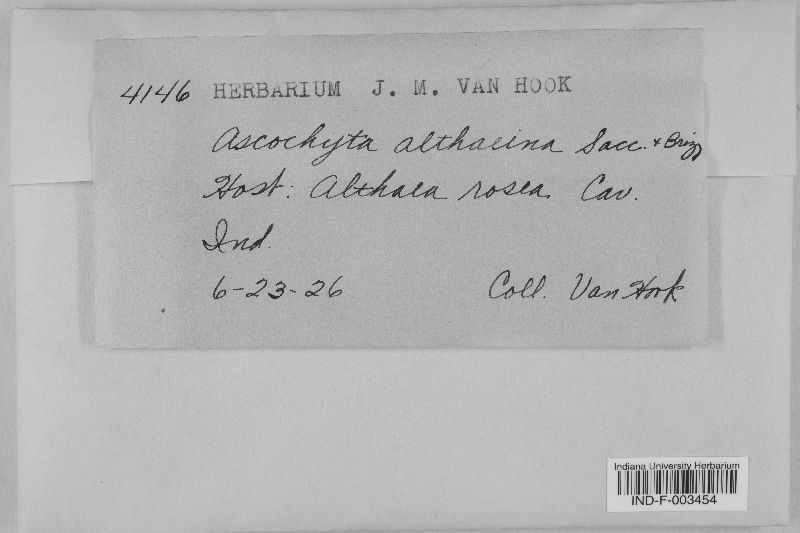 4146 HERBARIUM J. M. VAN HOOK
Ascochyta althaeina Sacc. & Brizz
Host: Althaea rosea Cav.
Ind.
6-23-26 Coll. Van Hook
Indiana University Herbarium
IND-F-003454